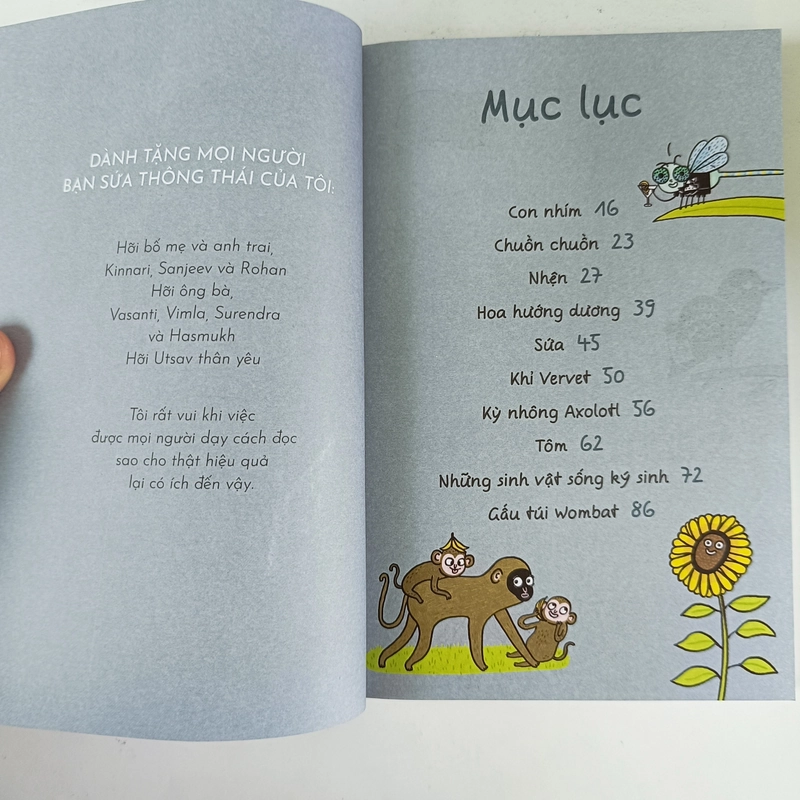 DÀNH TẶNG MỌI NGƯỜI
BẠN SỨA THÔNG THÁI CỦA TÔI:
Hỡi bố mẹ và anh trai,
Kinnari, Sanjeev và Rohan
Hỡi ông bà,
Vasanti, Vimla, Surendra
và Hasmukh
Hỡi Utsav thân yêu
Tôi rất vui khi việc
được mọi người dạy cách đọc
sao cho thật hiệu quả
lại có ích đến vậy.
Mục lục
Con nhím 16
Chuồn chuồn 23
Nhện 27
Hoa hướng dương 39
Sứa 45
Khỉ Vervet 50
Kỳ nhông Axolotl 56
Tôm 62
Những sinh vật sống ký sinh 72
Gấu túi Wombat 86